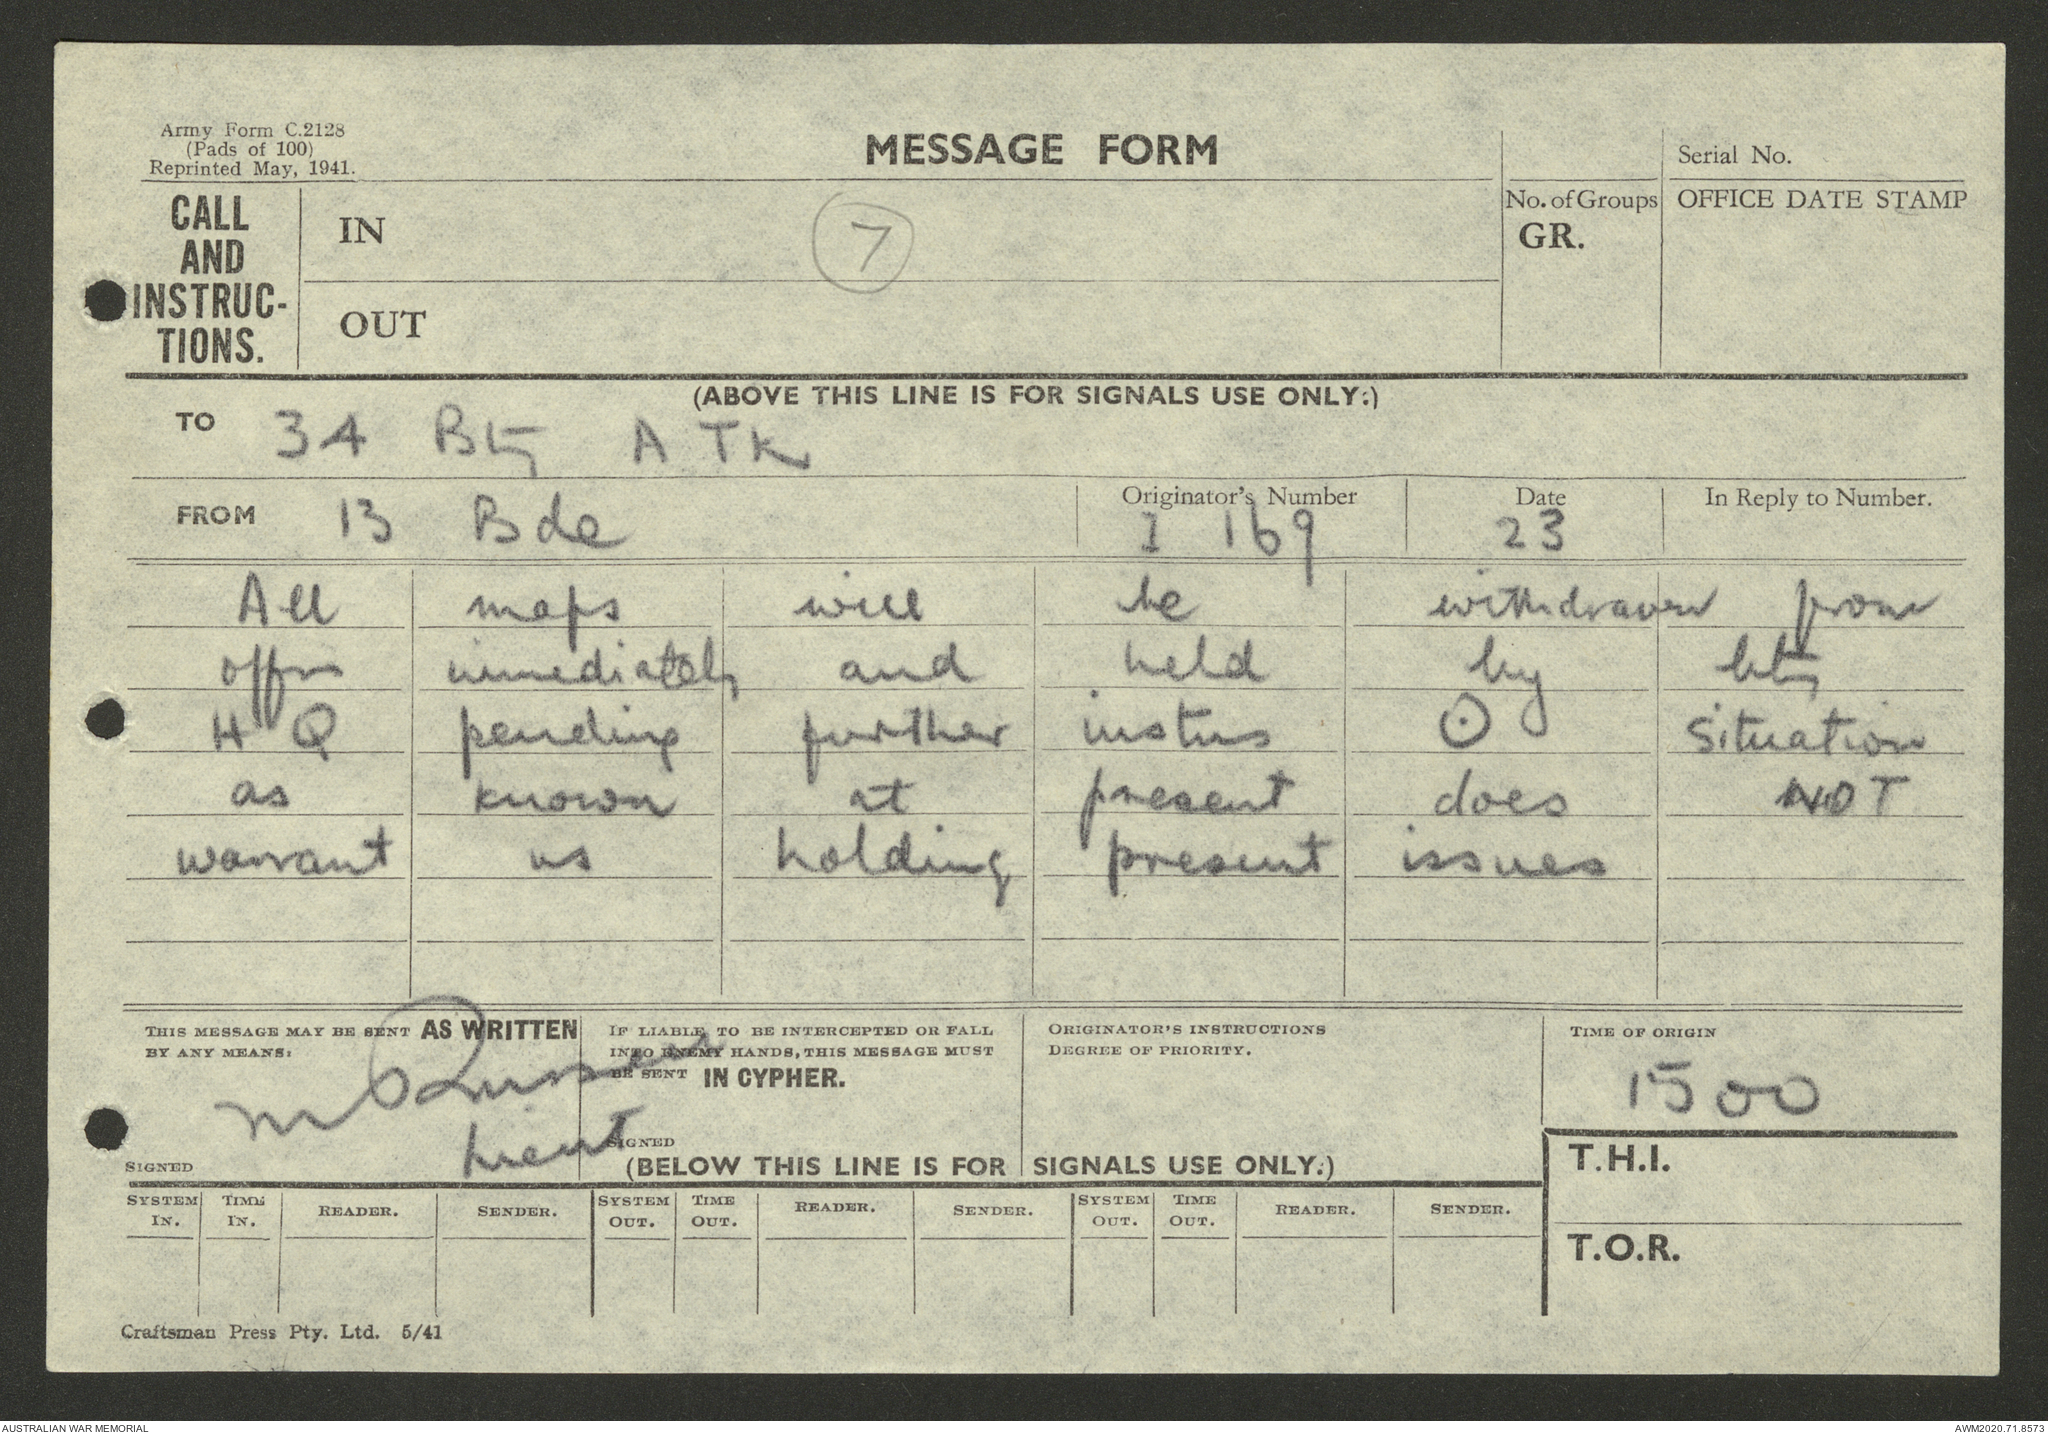 Army Form C.2128
(Pads of 100)
Reprinted May, 1941.
MESSAGE FORM
Serial No.
CALL
AND
INSTRUC-
TIONS.
IN
7
OUT
No. of Groups
GR.
OFFICE DATE STAMP
(ABOVE THIS LINE IS FOR SIGNALS USE ONLY.)
TO 34 Bty A TK
FROM 13 Bde
Originator's Number
I 169
Date
23
In Reply to Number.
All maps will be withdrawn from
offrs immediately and held by bty
H Q pending further instns ⊙ Situation
as known at present does NOT
warrant us holding present issues
THIS MESSAGE MAY BE SENT AS WRITTEN
BY ANY MEANS:
Lieut
SIGNED
IF LIABLE TO BE INTERCEPTED OR FALL
INTO ENEMY HANDS, THIS MESSAGE MUST
BE SENT IN CYPHER.
SIGNED
ORIGINATOR'S INSTRUCTIONS
DEGREE OF PRIORITY.
TIME OF ORIGIN
1500
(BELOW THIS LINE IS FOR SIGNALS USE ONLY.)
T.H.I.
T.O.R.
SYSTEM IN. TIME IN. READER. SENDER. SYSTEM OUT. TIME OUT. READER. SENDER. SYSTEM OUT. TIME OUT. READER. SENDER.
Craftsman Press Pty. Ltd. 5/41
AUSTRALIAN WAR MEMORIAL
AWM2020.71.8573